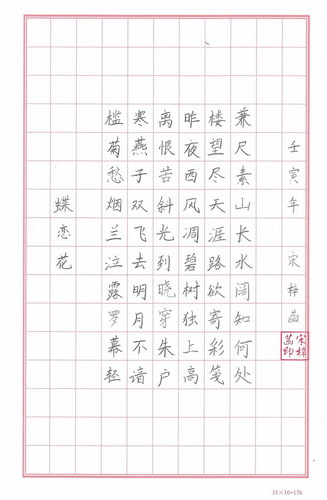 蝶恋花
槛菊愁烟兰泣露罗幕轻
寒燕子双飞去明月不谙
离恨苦斜光到晓穿朱户
昨夜西风凋碧树独上高
楼望尽天涯路欲寄彩笺
兼尺素山长水阔知何处
壬寅年 宋梓菡
宋梓菡印
11×16=176